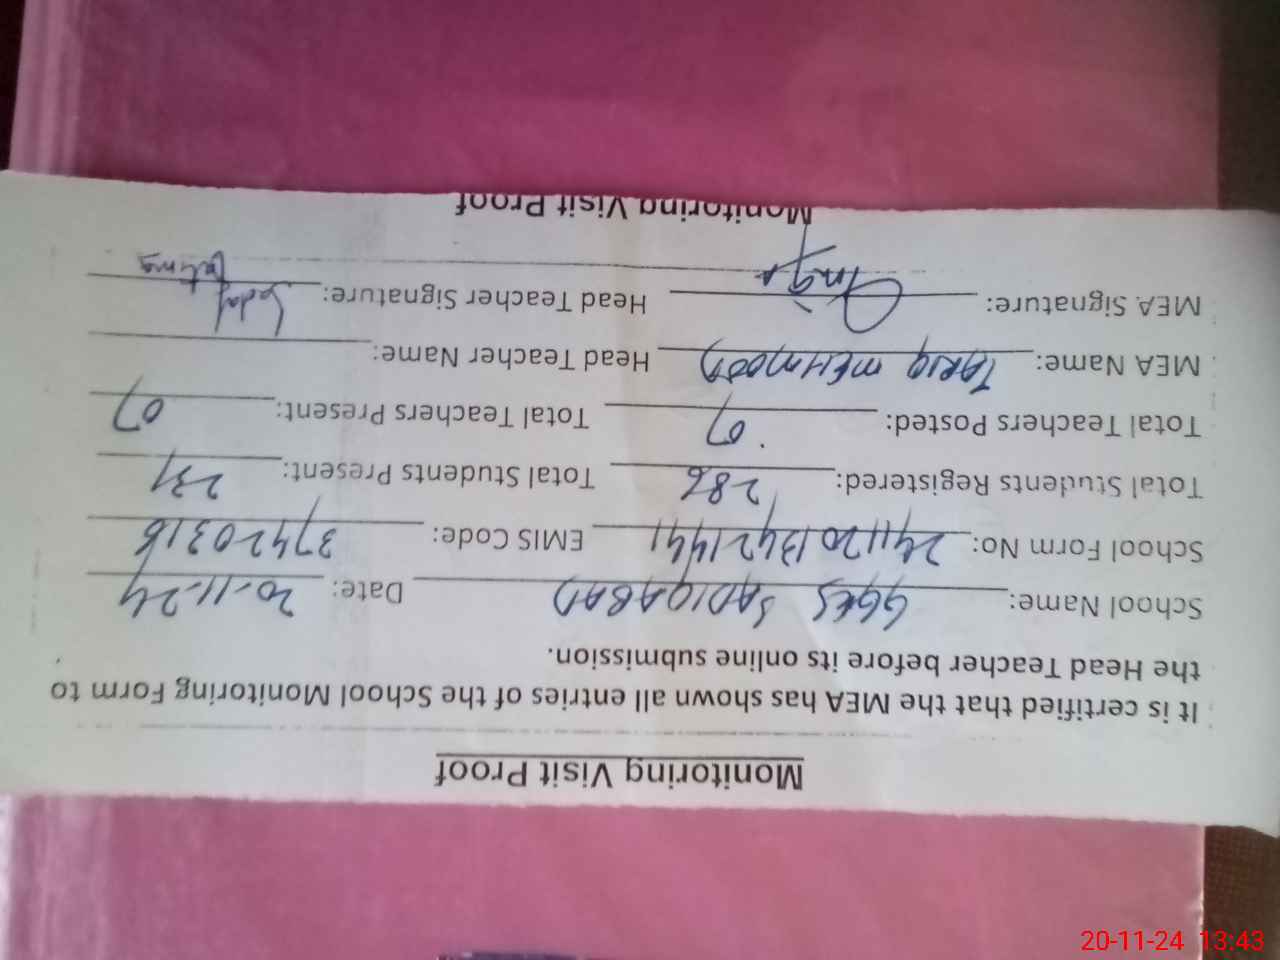 Monitoring Visit Proof
It is certified that the MEA has shown all entries of the School Monitoring Form to
the Head Teacher before its online submission.
School Name: GGES SADIQABAD Date: 20.11.24
School Form No: 24112013421441 EMIS Code: 37420316
Total Students Registered: 286 Total Students Present: 231
Total Teachers Posted: 07 Total Teachers Present: 07
MEA Name: TARIQ MEHMOOD Head Teacher Name:
MEA Signature: Head Teacher Signature: Sadaf Fatima
Monitoring Visit Proof
20-11-24 13:43